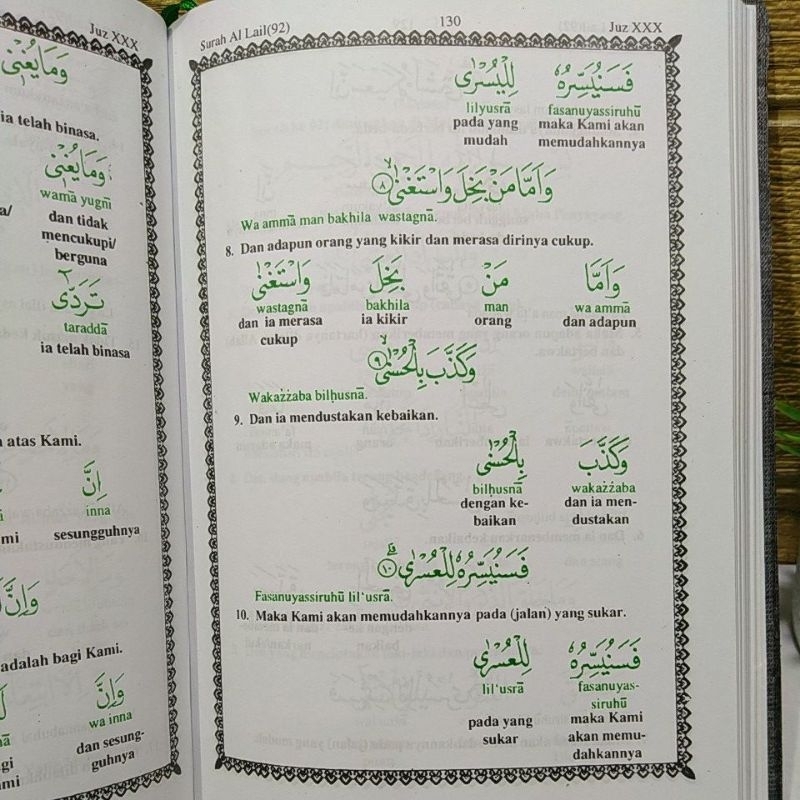 Surah Al Lail(92) 130 Juz XXX
فَسَنُيَسِّرُهٗ لِلْيُسْرٰى
fasanuyassiruhū lilyusrā
maka Kami akan memudahkannya pada yang mudah
وَاَمَّا مَنْۢ بَخِلَ وَاسْتَغْنٰىۙ ٨
Wa ammā man bakhila wastagnā.
8. Dan adapun orang yang kikir dan merasa dirinya cukup.
وَاَمَّا مَنْۢ بَخِلَ وَاسْتَغْنٰى
wa ammā man bakhila wastagnā
dan adapun orang ia kikir dan ia merasa cukup
وَكَذَّبَ بِالْحُسْنٰىۙ ٩
Wakażżaba bilḥusnā.
9. Dan ia mendustakan kebaikan.
وَكَذَّبَ بِالْحُسْنٰى
wakażżaba bilḥusnā
dan ia men-
dustakan
dengan ke-
baikan
فَسَنُيَسِّرُهٗ لِلْعُسْرٰىۗ ١٠
Fasanuyassiruhū lil'usrā.
10. Maka Kami akan memudahkannya pada (jalan) yang sukar.
فَسَنُيَسِّرُهٗ لِلْعُسْرٰى
fasanuyas-
siruhū
lil'usrā
maka Kami
akan memu-
dahkannya
pada yang
sukar
Juz XXX
وَمَا يُغْنِيْ
ia telah binasa.
وَمَا يُغْنِيْ
wamā yugnī
dan tidak
mencukupi/
berguna
تَرَدّٰى
taraddā
ia telah binasa
atas Kami.
اِنَّ
inna
sesungguhnya
وَاِنَّ
adalah bagi Kami.
وَاِنَّ
wa inna
dan sesung-
guhnya